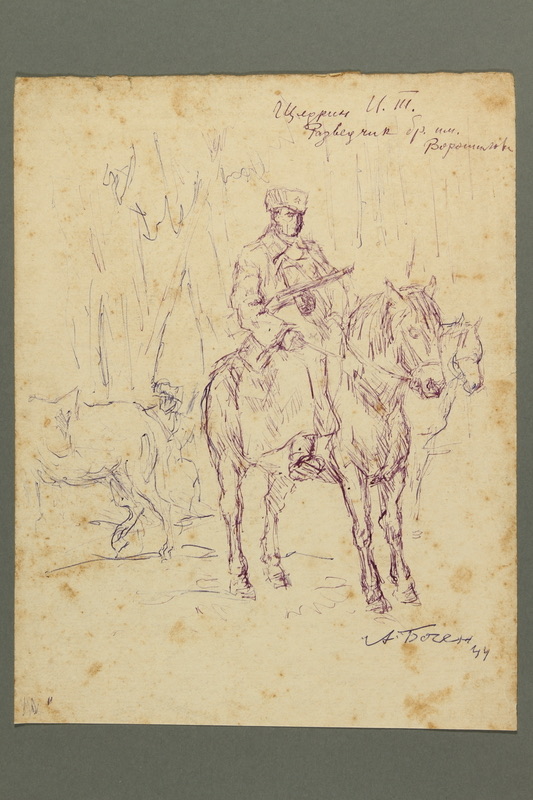 Щедрин И. Т.
Разведчик бр. им.
Ворошилова
А. Бочен
44